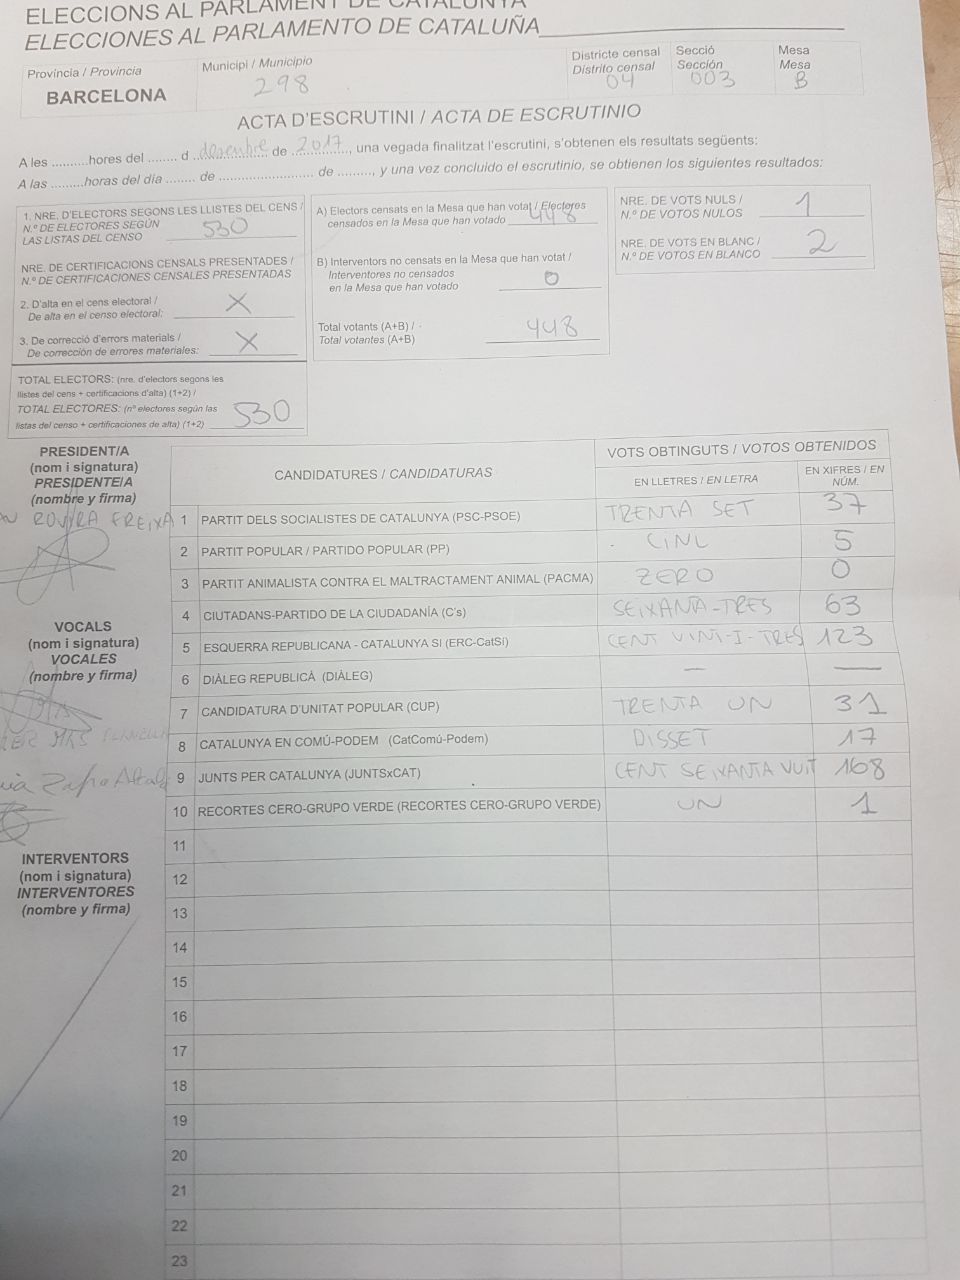 ELECCIONS AL PARLAMENT DE CATALUNYA
ELECCIONES AL PARLAMENTO DE CATALUÑA
Província / Provincia
BARCELONA
Municipi / Municipio
298
Districte censal
Distrito censal
04
Secció
Sección
003
Mesa
Mesa
B
ACTA D'ESCRUTINI / ACTA DE ESCRUTINIO
A les ..........hores del ........ d desembre de 2017, una vegada finalitzat l'escrutini, s'obtenen els resultats següents:
A las .........horas del día ........ de .......................... de ........., y una vez concluido el escrutinio, se obtienen los siguientes resultados:
1. NRE. D'ELECTORS SEGONS LES LLISTES DEL CENS /
N.º DE ELECTORES SEGÚN
LAS LISTAS DEL CENSO 530
NRE. DE CERTIFICACIONS CENSALS PRESENTADES /
N.º DE CERTIFICACIONES CENSALES PRESENTADAS
2. D'alta en el cens electoral /
De alta en el censo electoral: X
3. De correcció d'errors materials /
De corrección de errores materiales: X
TOTAL ELECTORS: (nre. d'electors segons les
llistes del cens + certificacions d'alta) (1+2) /
TOTAL ELECTORES: (nº electores según las
listas del censo + certificaciones de alta) (1+2) 530
A) Electors censats en la Mesa que han votat / Electores
censados en la Mesa que han votado 448
B) Interventors no censats en la Mesa que han votat /
Interventores no censados
en la Mesa que han votado 0
Total votants (A+B) /
Total votantes (A+B) 448
NRE. DE VOTS NULS /
N.º DE VOTOS NULOS 1
NRE. DE VOTS EN BLANC /
N.º DE VOTOS EN BLANCO 2
PRESIDENT/A
(nom i signatura)
PRESIDENTE/A
(nombre y firma)
ROVIRA FREIXA
VOCALS
(nom i signatura)
VOCALES
(nombre y firma)
MAS
INTERVENTORS
(nom i signatura)
INTERVENTORES
(nombre y firma)
CANDIDATURES / CANDIDATURAS
VOTS OBTINGUTS / VOTOS OBTENIDOS
EN LLETRES / EN LETRA
EN XIFRES / EN
NÚM.
1 PARTIT DELS SOCIALISTES DE CATALUNYA (PSC-PSOE) TRENTA SET 37
2 PARTIT POPULAR / PARTIDO POPULAR (PP) CINC 5
3 PARTIT ANIMALISTA CONTRA EL MALTRACTAMENT ANIMAL (PACMA) ZERO 0
4 CIUTADANS-PARTIDO DE LA CIUDADANÍA (C's) SEIXANTA-TRES 63
5 ESQUERRA REPUBLICANA - CATALUNYA SI (ERC-CatSí) CENT VINT-I-TRES 123
6 DIÀLEG REPUBLICÀ (DIÀLEG) — —
7 CANDIDATURA D'UNITAT POPULAR (CUP) TRENTA UN 31
8 CATALUNYA EN COMÚ-PODEM (CatComú-Podem) DISSET 17
9 JUNTS PER CATALUNYA (JUNTSxCAT) CENT SEIXANTA VUIT 168
10 RECORTES CERO-GRUPO VERDE (RECORTES CERO-GRUPO VERDE) UN 1
11
12
13
14
15
16
17
18
19
20
21
22
23